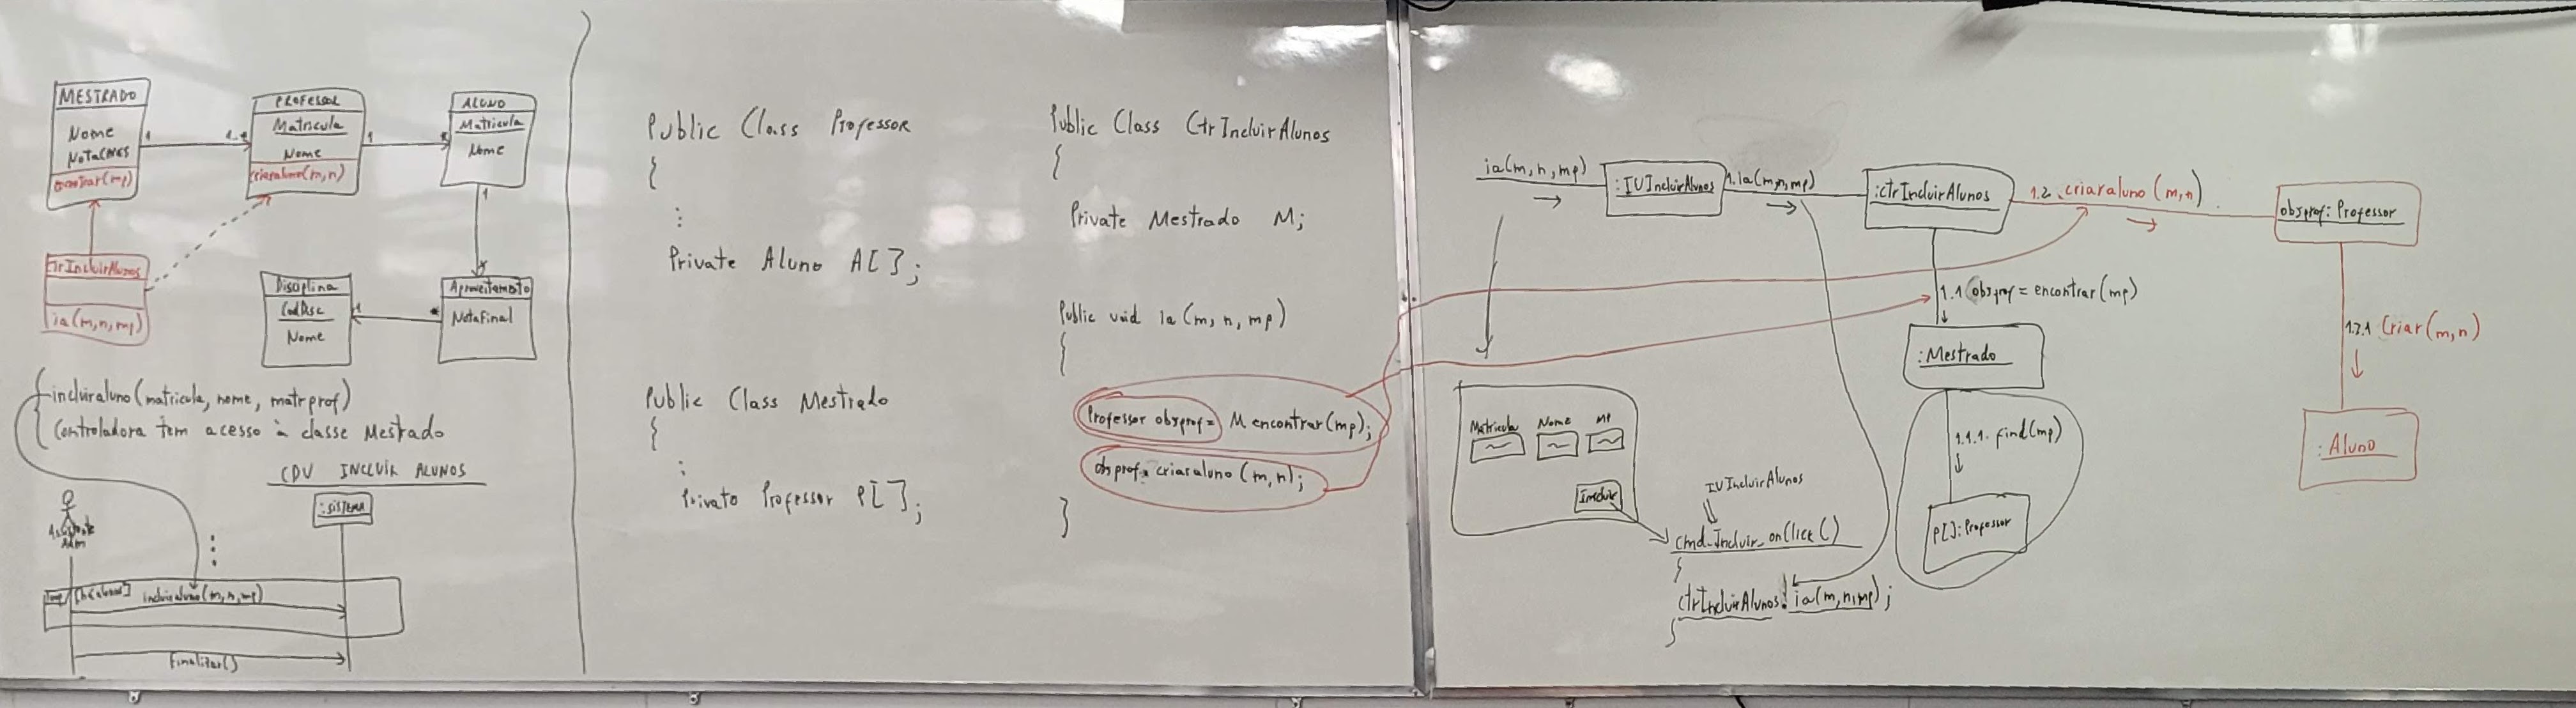 MESTRADO
Nome
NotaCAPES
encontrar(mp)
1
1..*
PROFESSOR
Matricula
Nome
criaraluno(m,n)
1
*
ALUNO
Matricula
Nome
1
*
CtrIncluirAlunos
ia(m,n,mp)
Disciplina
CodDisc
Nome
1
*
Aproveitamento
NotaFinal
incluiraluno(matricula, nome, matrprof)
Controladora tem acesso à classe Mestrado
CDU INCLUIR ALUNOS
:SISTEMA
Adm
loop
incluiraluno(m,n,mp)
Finalizar()
Public Class Professor
{
:
Private Aluno A[];
Public Class Mestrado
{
:
Privato Professor P[];
Public Class CtrIncluirAlunos
{
Private Mestrado M;
Public void ia(m, n, mp)
{
Professor objprof = M encontrar(mp);
objprof.criaraluno(m,n);
}
ia(m,n,mp)
:IUIncluirAlunos
1.ia(m,n,mp)
:CtrIncluirAlunos
1.2. criaraluno(m,n)
objprof: Professor
1.1 objprof = encontrar(mp)
:Mestrado
1.1.1. find(mp)
P[]:Professor
1.2.1 Criar(m,n)
:Aluno
Matricula Nome MP
Incluir
IUIncluirAlunos
cmd_Incluir_onClick()
{
CtrIncluirAlunos.ia(m,n,mp);
}